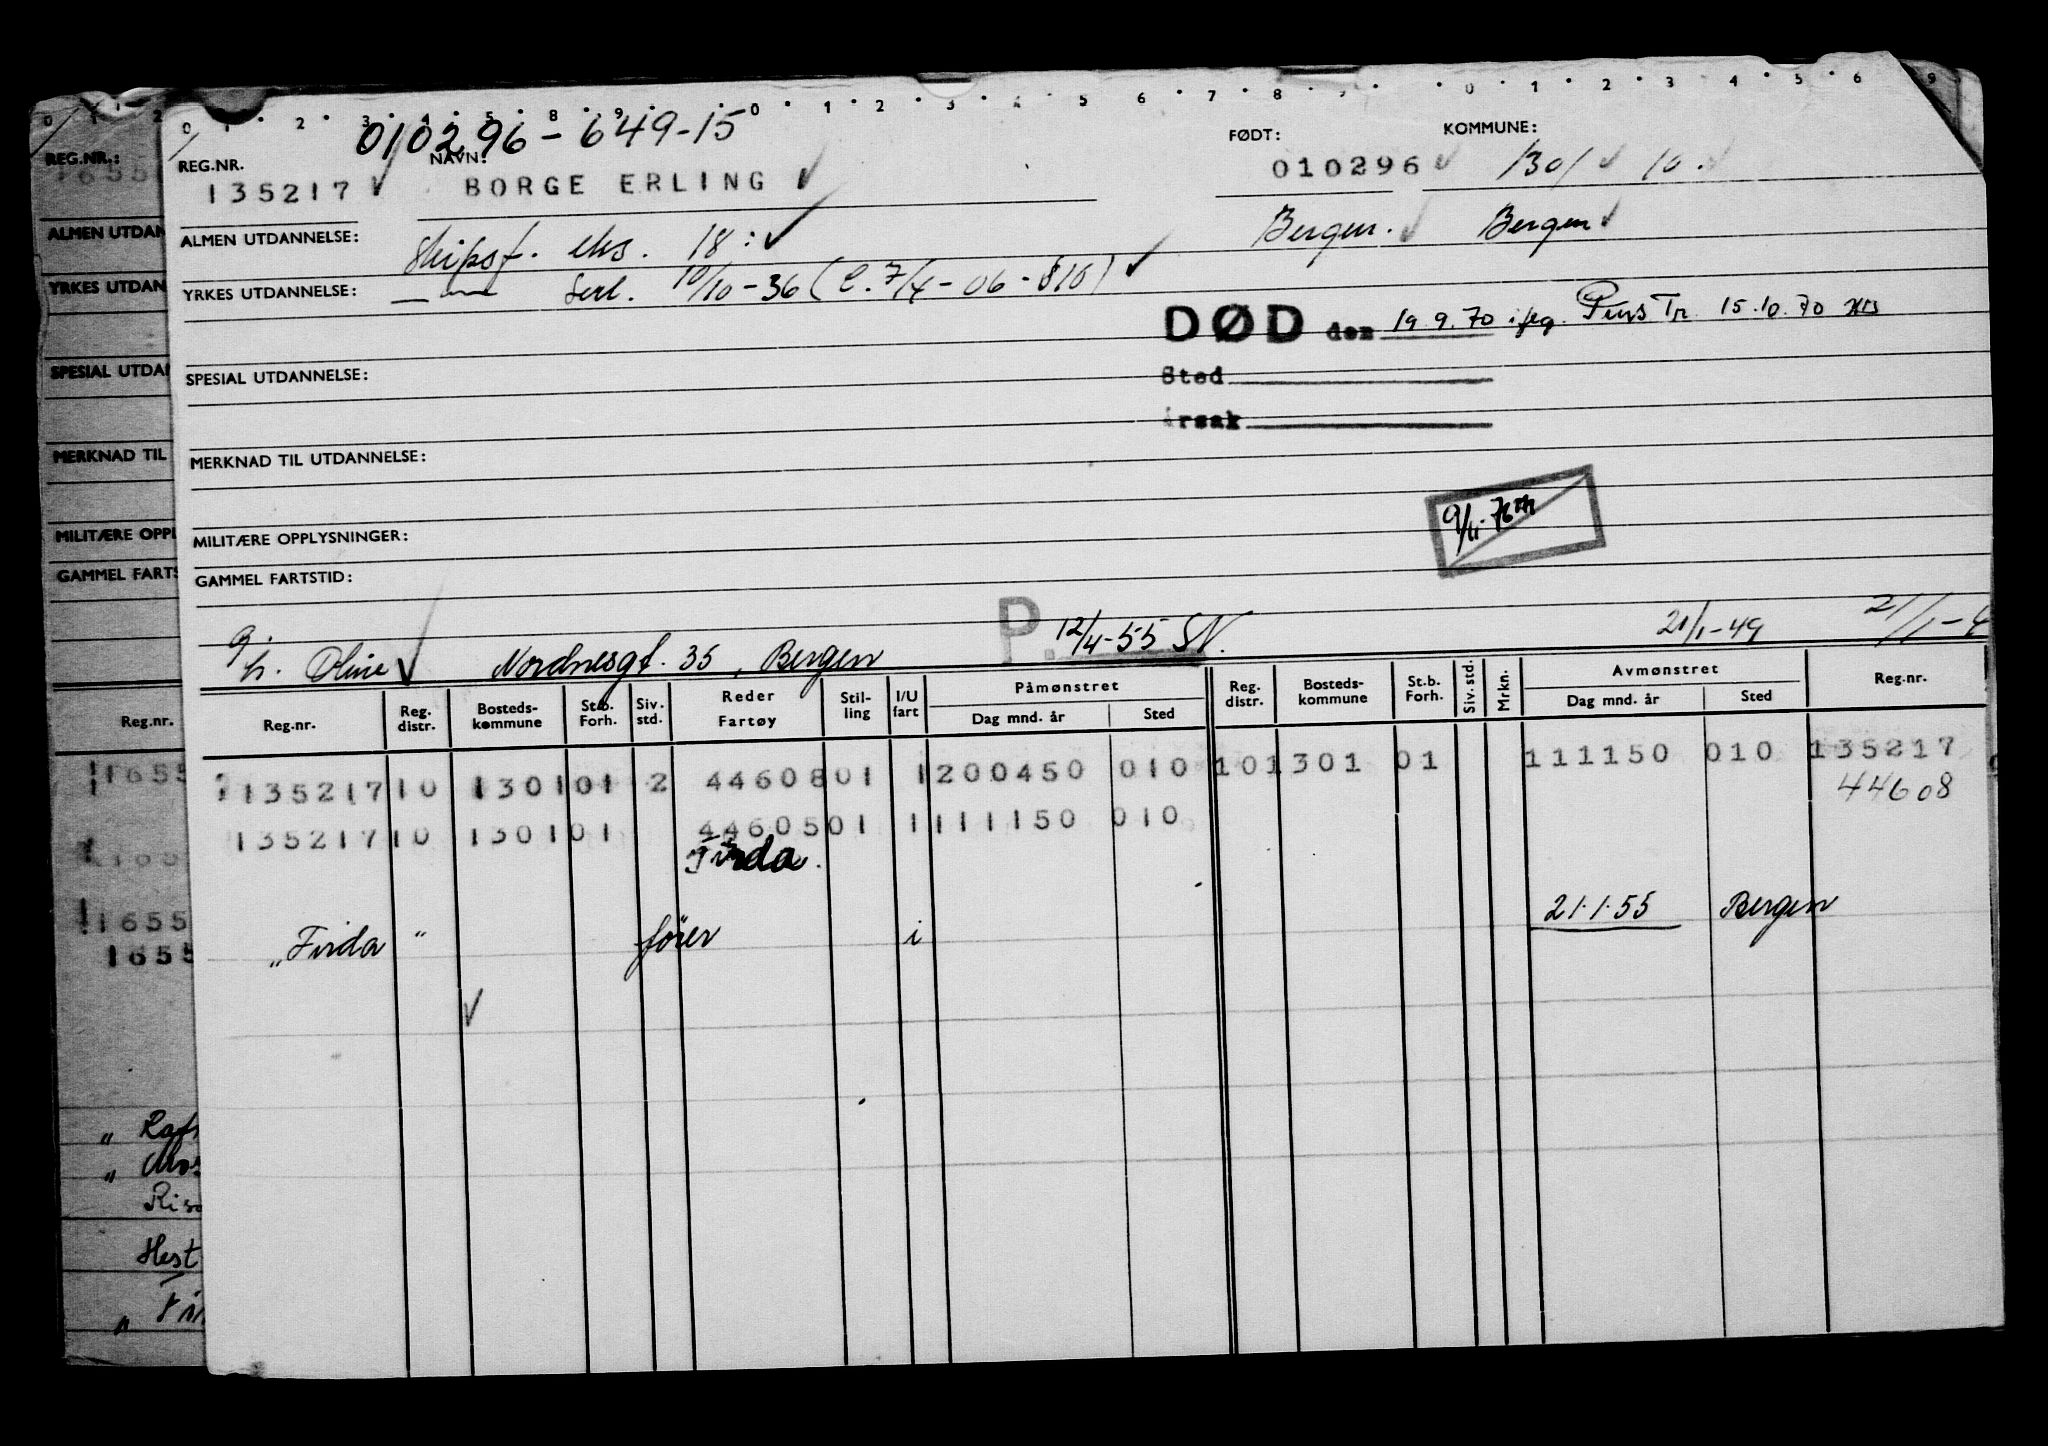 0 1 2 3 4 5 8 9 0 1 2 3 4 5 6 7 8 0 1 2 3 4 5 6 9
010296-649-15
REG.NR. NAVN: FØDT: KOMMUNE:
135217 BORGE ERLING 010296 1301 10.
ALMEN UTDANNELSE: Skipsf. eks. 18: Bergen. Bergen
YRKES UTDANNELSE: — " — Serl. 10/10-36 (C. 7/4-06-810)
DØD den 19.9.70 iføg. Pens Tr. 15.10.70
SPESIAL UTDANNELSE: Sted
årsak
MERKNAD TIL UTDANNELSE:
9/11-76
MILITÆRE OPPLYSNINGER:
GAMMEL FARTSTID:
P. 12/4-55 SN. 21/1-49 21/1-4
g. h. Oline Nordnesgt. 35, Bergen
Reg.nr. Reg. distr. Bosteds-kommune St.b. Forh. Siv. std. Reder Fartøy Stil-ling I/U fart Påmønstret Dag mnd. år Sted Reg. distr. Bosteds-kommune St.b. Forh. Siv. std. Mrkn. Avmønstret Dag mnd. år Sted Reg.nr.
135217 10 1301 01 2 44608 01 1 200450 010 10 1301 01 111150 010 135217
44608
135217 10 1301 01 44605 01 1 111150 010
Firda.
„Firda" fører i 21.1.55 Bergen
REG.NR.:
1655
ALMEN UTDAN
YRKES UTDAN
SPESIAL UTDAN
MERKNAD TIL
MILITÆRE OPPL
GAMMEL FARTS
Reg.nr.
1655
165
1655
1655
„ Raf
„ Mos
Ris
Hest
„ Fir